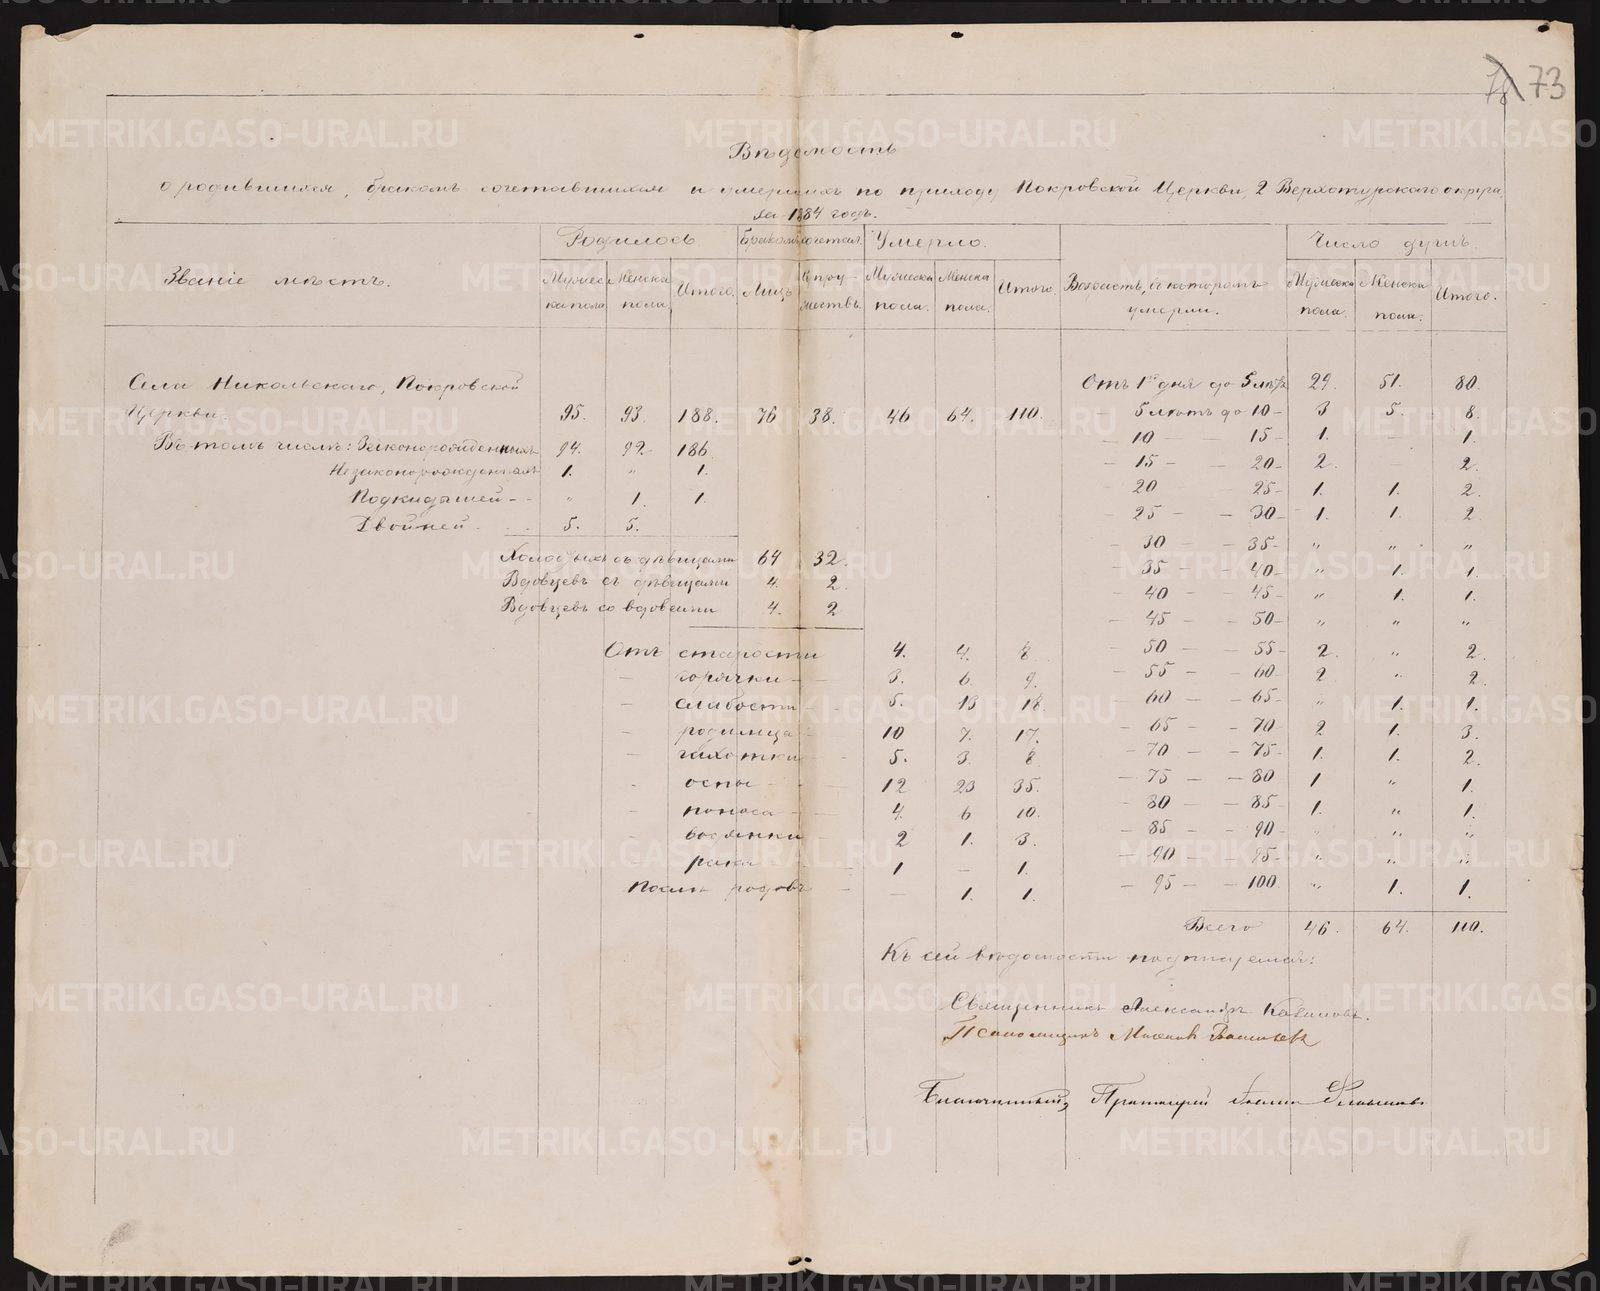 78 73
Вѣдомость
о родившихся, бракомъ сочетавшихся и умершихъ по приходу Покровской Церкви, 2 Верхотурскаго округа,
за 1884 годъ.
Званіе мѣстъ. Родилось Бракомъ сочетал. Умерло. Возрастъ, въ которомъ умерли. Число душъ.
Мужеска пола Женска пола Итого. Лицъ Супружествъ. Мужеска пола. Женска пола. Итого. Мужеска пола. Женска пола. Итого.
Села Никольскаго, Покровской
Церкви. 95. 93. 188. 76 38. 46 64. 110.
Въ томъ числѣ: Законорожденныхъ 94. 92. 186.
Незаконорожденныхъ 1. " 1.
Подкидышей - - " 1. 1.
Двойней 5. 5.
Холостыхъ съ дѣвицами 64 32.
Вдовцевъ съ дѣвицами 4. 2.
Вдовцевъ со вдовами 4. 2
Отъ старости 4. 4. 8.
— горячки — 3. 6. 9.
— слабости 5. 13 18
— родимца 10 7. 17.
— чахотки 5. 3. 8
- оспы 12 23 35.
- поноса 4. 6 10.
- водянки 2 1. 3.
- рака 1 — 1.
Послѣ родовъ — — 1. 1.
Отъ 1го дня до 5 лѣтъ 29. 51. 80.
— 5 лѣтъ до 10 — 3 5. 8.
— 10 — — 15 — 1. — 1.
— 15 — — 20 — 2. — 2.
— 20 25 — 1. 1. 2.
— 25 — — 30 — 1. 1. 2
— 30 — 35 — " " "
— 35 — — 40 — " 1. 1.
— 40 — — 45 — " 1. 1.
— 45 — — 50 — " " "
— 50 — — 55 — 2. " 2.
— 55 — — 60 — 2 " 2.
— 60 — — 65 — " 1. 1.
— 65 — — 70 — 2 1. 3.
— 70 — — 75 — 1. 1. 2.
— 75 — — 80 1 " 1.
— 80 — — 85 — 1. " 1.
— 85 — — 90 — " " "
— 90 — — 95 — " " "
— 95 — — 100. " 1. 1.
Всего 46. 64. 110.
Къ сей вѣдомости подписуемся:
Священникъ Александръ
Псаломщикъ Васильевъ
Благочинный, Протоіерей
METRIKI.GASO-URAL.RU